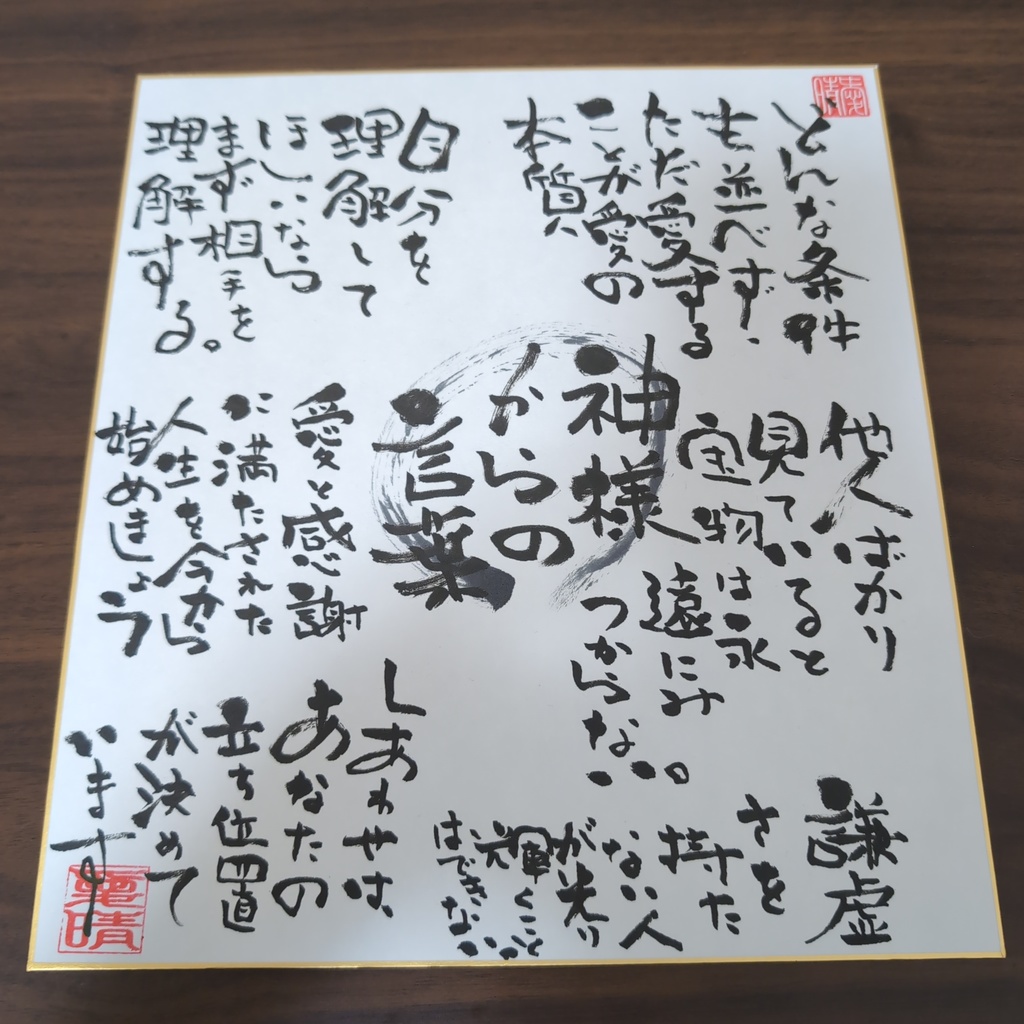 どんな条件
も並べず、
ただ愛する
ことが愛の
本質
自分を
理解して
ほしいなら
まず相手を
理解する。
神様
からの
言葉
他人ばかり
見ていると
宝物は永
遠にみ
つからない。
愛と感謝
に満たされた
人生を今から
始めましょう
謙虚
さを
持た
ない人
が光り
輝くこと
はできない
しあわせは、
あなたの
立ち位置
が決めて
います
晴